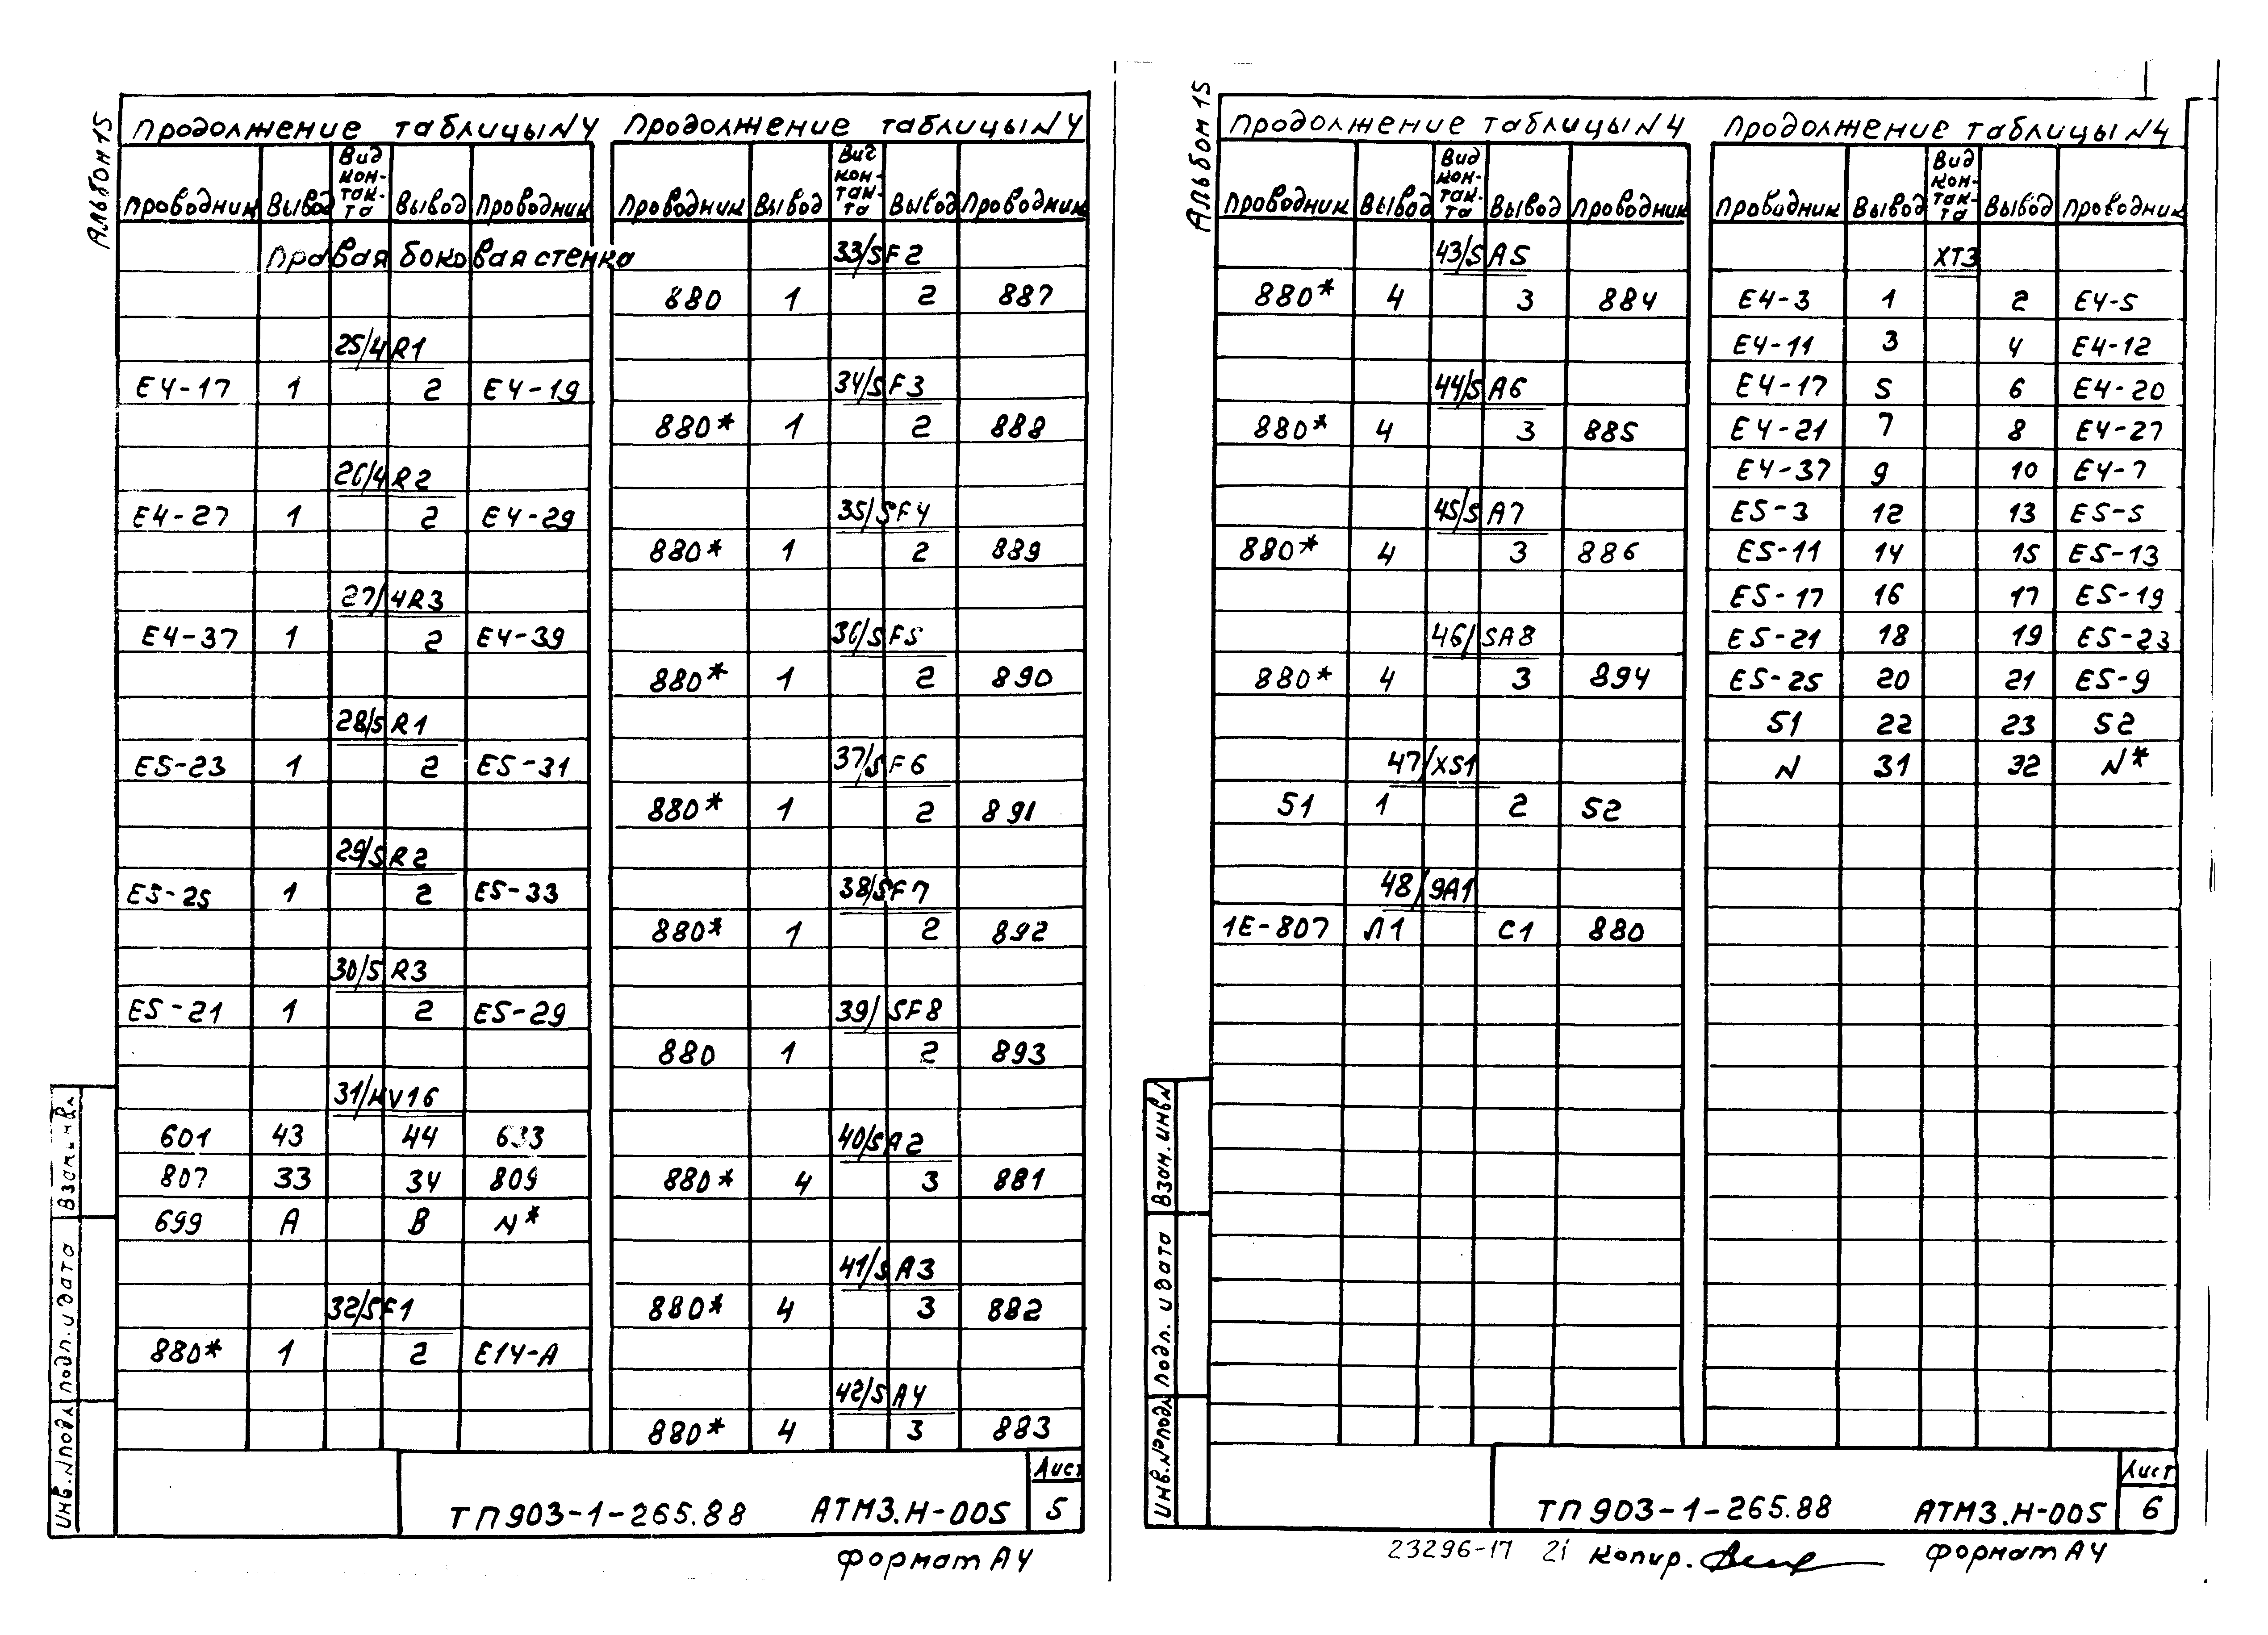 Альбом 15
Продолжение таблицы N4
Проводник Вывод Вид кон-так-та Вывод Проводник
Правая боковая стенка
25/4R1
E4-17 1 2 E4-19
26/4R2
E4-27 1 2 E4-29
27/4R3
E4-37 1 2 E4-39
28/5R1
E5-23 1 2 E5-31
29/5R2
E5-25 1 2 E5-33
30/5R3
E5-21 1 2 E5-29
31/KV16
601 43 44 633
807 33 34 809
699 A B N*
32/SF1
880* 1 2 E14-A
Продолжение таблицы N4
Проводник Вывод Вид кон-так-та Вывод Проводник
33/SF2
880 1 2 887
34/SF3
880* 1 2 888
35/SF4
880* 1 2 889
36/SF5
880* 1 2 890
37/SF6
880* 1 2 891
38/SF7
880* 1 2 892
39/SF8
880 1 2 893
40/SA2
880* 4 3 881
41/SA3
880* 4 3 882
42/SA4
880* 4 3 883
Взам. инв. N
Подп. и дата
Инв. N подл
ТП903-1-265.88 АТМ3.Н-005
Лист
5
Формат А4
Альбом 15
Продолжение таблицы N4
Проводник Вывод Вид кон-так-та Вывод Проводник
43/SA5
880* 4 3 884
44/SA6
880* 4 3 885
45/SA7
880* 4 3 886
46/SA8
880* 4 3 894
47/XS1
51 1 2 52
48/9A1
1E-807 Л1 С1 880
Продолжение таблицы N4
Проводник Вывод Вид кон-так-та Вывод Проводник
XT3
E4-3 1 2 E4-5
E4-11 3 4 E4-12
E4-17 5 6 E4-20
E4-21 7 8 E4-27
E4-37 9 10 E4-7
E5-3 12 13 E5-5
E5-11 14 15 E5-13
E5-17 16 17 E5-19
E5-21 18 19 E5-23
E5-25 20 21 E5-9
51 22 23 52
N 31 32 N*
Взам. инв. N
Подп. и дата
Инв. № подл
ТП903-1-265.88 АТМ3.Н-005
Лист
6
23296-17 21 Копир. Формат А4